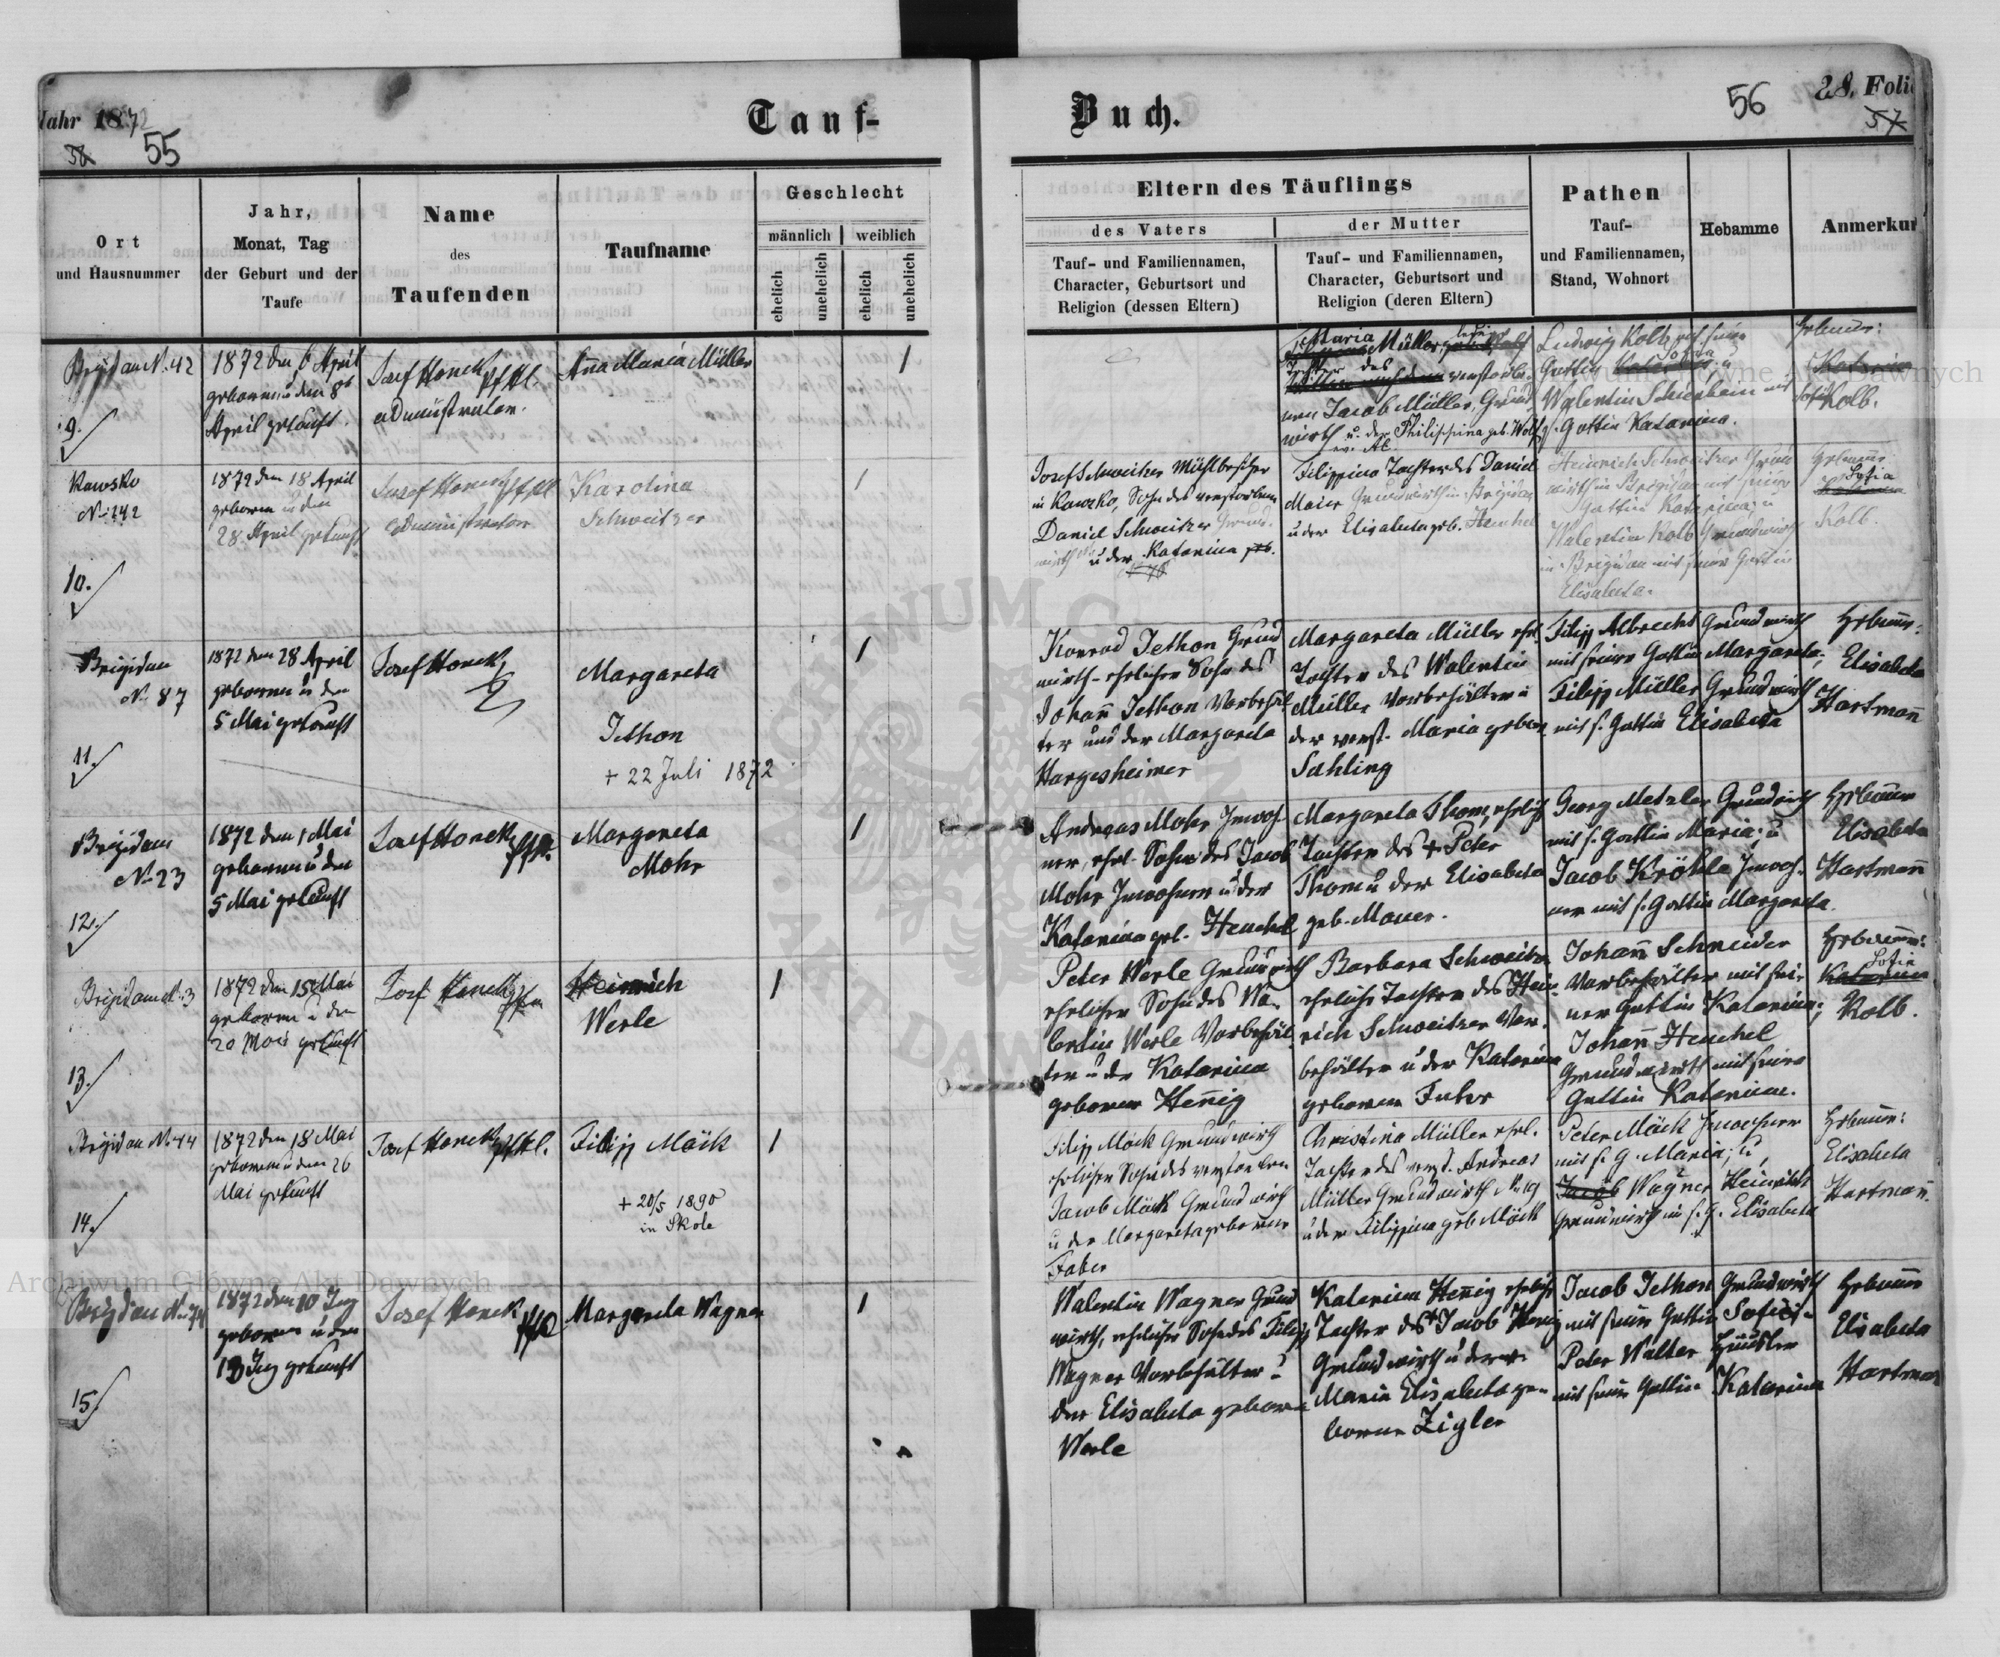 Jahr 1872
55
Tauf-
Ort
und Hausnummer
Jahr,
Monat, Tag
der Geburt und der
Taufe
Name
des
Taufenden
Taufname
Geschlecht
männlich
weiblich
ehelich
unehelich
ehelich
unehelich
Brigidau N. 42
9.
1872 den 6 April
geboren u den 8t
April getauft.
Josef Honek
administrator.
Anna Maria Müller
1
Kawsko
No 142
10.
1872 den 18 April
geboren u den
28. April getauft
Josef Honek
administrator
Karolina
Schweitzer
1
Brigidau
N. 87
11.
1872 den 28 April
geboren u den
5 Mai getauft
Josef Honek
Margareta
Jethon
+ 22 Juli 1872
1
Brigidau
N. 23
12.
1872 den 1 Mai
geboren u den
5 Mai getauft
Josef Honek
Margareta
Mohr
1
Brigidau N. 3
13.
1872 den 15 Mai
geboren u den
20 Mai getauft
Josef Honek
Heinrich
Werle
1
Brigidau No 44
14.
1872 den 18 Mai
geboren u den 26
Mai getauft
Josef Honek
Filipp Mäck
+ 20/5 1890
in Skole
1
Brigidau N. 74
15.
1872 den 10 Juny
geboren u den
13 Juny getauft
Josef Honek
Margareta Wagner
1
Buch.
56
28. Folio
57
Eltern des Täuflings
des Vaters
Tauf- und Familiennamen,
Character, Geburtsort und
Religion (dessen Eltern)
der Mutter
Tauf- und Familiennamen,
Character, Geburtsort und
Religion (deren Eltern)
Pathen
Tauf-
und Familiennamen,
Stand, Wohnort
Hebamme
Anmerkun
Maria
Müller
des verstorbe-
nen Jacob Müller, Grund
wirth u. der Philippina geb. Wolf
Ludwig Kolb mit seiner
Gattin Sofia u
Walentin Schierbein mit
s. Gattin Katarina.
Hebamm:
Sofia
Kolb.
Josef Schweitzer Mühlbesitzer
in Kawsko, Sohn des verstorbenen
Daniel Schweitzer Grund-
wirth u der Katarina geb.
Filippina Tochter des Daniel
Maier Grundwirth in Brigidau
u der Elisabeta geb. Henkel
Heinrich Schweitzer Grund
wirth in Brigidau mit seiner
Gattin Katarina; u
Walentin Kolb Grundwirth
in Brigidau mit seiner Gattin
Elisabeta.
Hebamme
Sofia
Kolb.
Konrad Jethon Grund
wirth - ehelicher Sohn des
Johann Jethon Vorbehäl
ter und der Margareta
Hargesheimer
Margareta Müller ehel.
Tochter des Walentin
Müller Vorbehälter u
der verst. Maria geboren
Sahling
Filipp Albrecht Grundwirth
mit seiner Gattin Margareta;
Filipp Müller Grundwirth
mit s. Gattin Elisabeta
Hebamme:
Elisabeta
Hartmann
Andreas Mohr Inwoh-
ner, ehel. Sohn des Jacob
Mohr Inwohner u der
Katarina geb. Henkel
Margareta Thom, ehelich
Tochter des + Peter
Thom u der Elisabeta
geb. Mauer.
Georg Metzler Grundwirth
mit s. Gattin Maria; u
Jacob Kröhle Inwoh-
ner mit s. Gattin Margareta.
Hebamme
Elisabeta
Hartmann
Peter Werle Grundwirth
ehelicher Sohn des Wa-
lentin Werle Vorbehäl
ter u der Katarina
geboren Hennig
Barbara Schweitzer
eheliche Tochter des Hein-
rich Schweitzer Vor-
behälter u der Katarina
geboren Fuhr
Johann Schneider
Vorbehälter mit sei-
ner Gattin Katarina;
Johann Henkel
Grundwirth mit seiner
Gattin Katarina.
Hebamme:
Sofia
Katarina
Kolb.
Filipp Mäck Grundwirth
ehelicher Sohn des verstorbenen
Jacob Mäck Grundwirth
u der Margareta geborene
Faber
Christina Müller ehel.
Tochter des verst. Andreas
Müller Grundwirth No 19
u der Filippina geb Mäck
Peter Mäck Inwohner
mit s. G. Maria; u
Jacob Wagner Heinrich
Grundwirth mit s. G. Elisabeta
Hebamme:
Elisabeta
Hartmann.
Walentin Wagner Grund
wirth, ehelicher Sohn des Filipp
Wagner Vorbehälter u
der Elisabeta geboren
Werle
Katarina Hennig ehelich
Tochter des + Jacob Hennig
Grundwirth u der
Maria Elisabeta ge-
borene Zigler
Jacob Jethon Grundwirth
mit seiner Gattin Sofie; u
Peter Walter Häusler
mit seiner Gattin Katarina
Hebamme
Elisabeta
Hartman
Archiwum Główne Akt Dawnych
Archiwum Główne Akt Dawnych